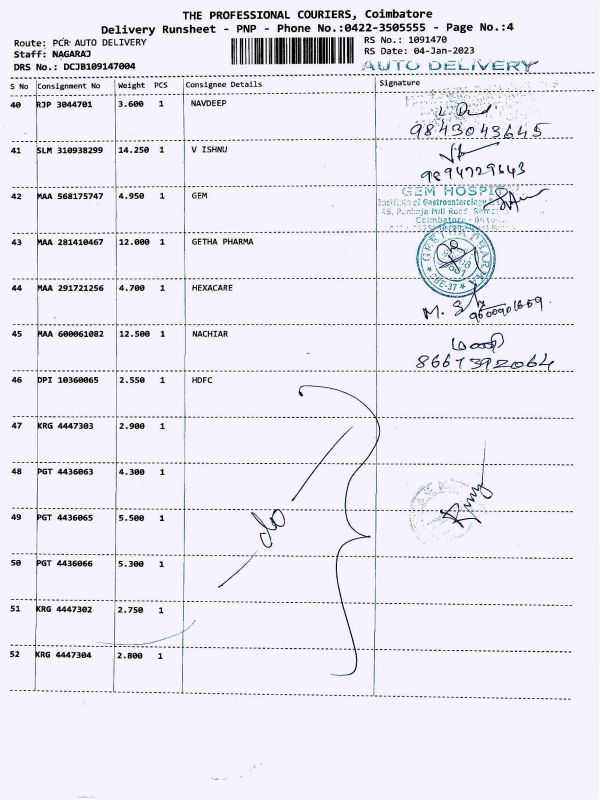 THE PROFESSIONAL COURIERS, Coimbatore
Delivery Runsheet - PNP - Phone No.:0422-3505555 - Page No.:4
Route: PCR AUTO DELIVERY
RS No.: 1091470
Staff: NAGARAJ
RS Date: 04-Jan-2023
DRS No.: DCJB109147004
AUTO DELIVERY
S No Consignment No Weight PCS Consignee Details Signature
40 RJP 3044701 3.600 1 NAVDEEP
9843043645
41 SLM 310938299 14.250 1 V ISHNU
9894729643
42 MAA 568175747 4.950 1 GEM
GEM HOSPI
Institute of Gastroenterology
45, Pankaja Mill Road
Coimbatore
43 MAA 281410467 12.000 1 GETHA PHARMA
GEETHA PHARMA
CBE-37
44 MAA 291721256 4.700 1 HEXACARE
45 MAA 600061082 12.500 1 NACHIAR
8667392064
46 DPI 10360065 2.550 1 HDFC
47 KRG 4447303 2.900 1
48 PGT 4436063 4.300 1
49 PGT 4436065 5.500 1
do
50 PGT 4436066 5.300 1
51 KRG 4447302 2.750 1
52 KRG 4447304 2.800 1